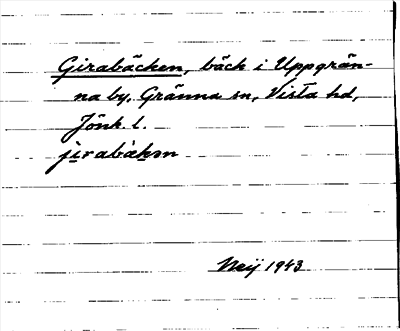 Girabäcken, bäck i Uppgrän-
na by, Gränna sn, Vista hd,
Jönk l.
jirabàkən
Neij 1943